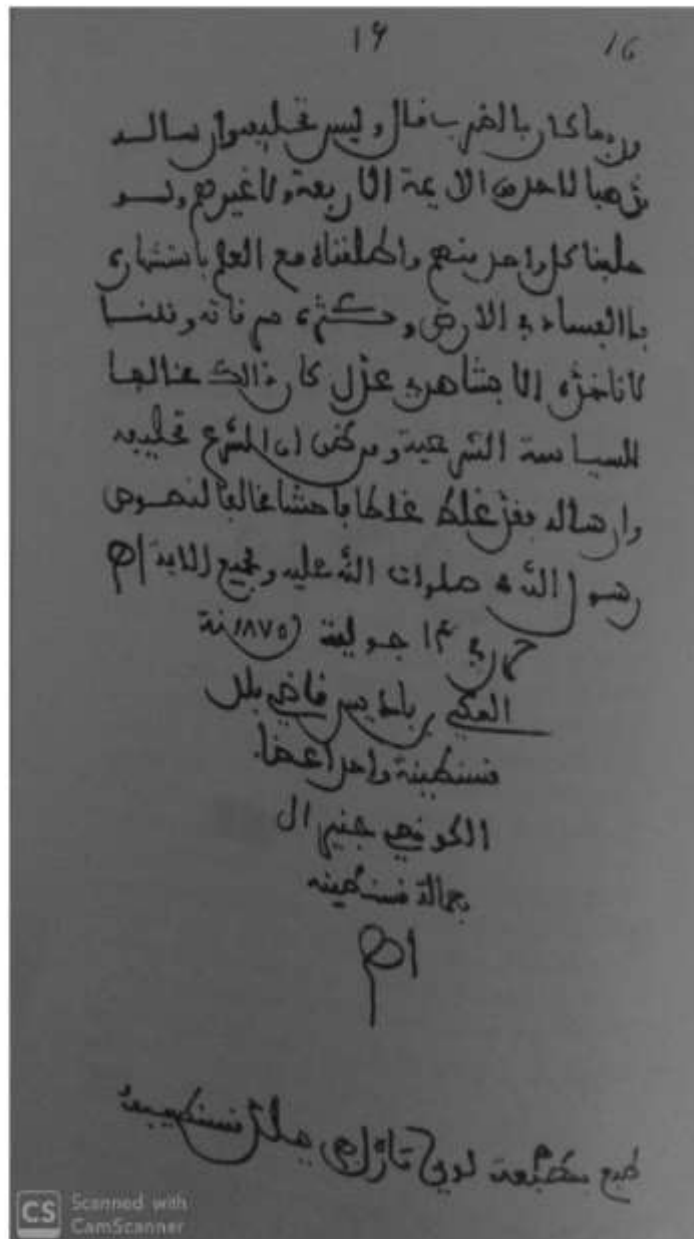 ١٦ 16
وربما كان بالضرب قال وليس تخليفه وارساله
مذهبا لاحد من الايمة الاربعة ولا غيرهم ولو
حلفنا كل واحد منهم واطلقناه مع العلم باشتهاره
بالفساد في الارض وكثرة سرقاته وقلنا
لا ناخذه الا بشاهدي عدل كان ذالك مخالفا
للسياسة الشرعية ومن ظن ان الشرع تحليفه
وارساله فقد غلط غلطا فاحشا مخالفا لنصوص
رسول الله صلوات الله عليه ولجميع الايمة اهـ
حرر في ٣١ جوليت سنة ١٨٧٥
المكي بن باديس قاضي بلد
قسنطينة واحد اعضا
الكونصي جنيرال
بعمالة قسنطينه
اهـ
طبع بمطبعة لويز قسنطينة
CS Scanned with
CamScanner